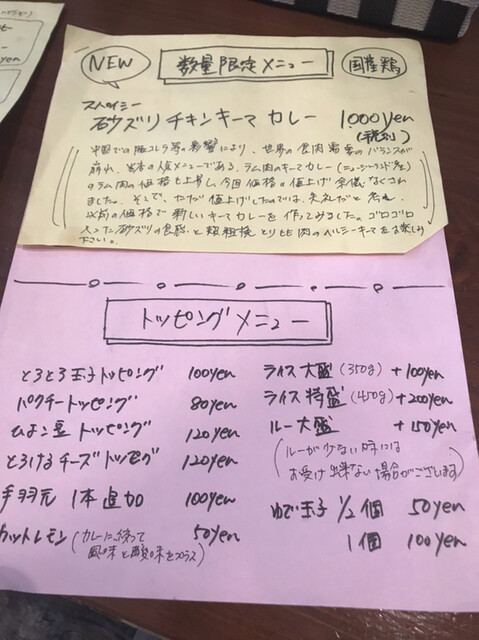 NEW
数量限定メニュー
国産鶏
スパイシー
砂ズリチキンキーマカレー 1000yen
(税別)
中国での豚コレラ等の影響により、世界の食肉需要のバランスが
崩れ、当店の人気メニューである、ラム肉のキーマカレー(ニュージーランド産)
のラム肉の価格も上昇し、今回価格の値上げを余儀なくされ
ました。そこで、ただ値上げしたのでは、失礼だと考え、
以前の価格で新しいキーマカレーを作ってみました。ゴロゴロ
入った砂ズリの食感と粗挽きとりむね肉のヘルシーキーマをお楽しみ
下さい。
トッピングメニュー
とろとろ玉子トッピング 100yen
パクチートッピング 80yen
ひよこ豆トッピング 120yen
とろけるチーズトッピング 120yen
手羽元 1本追加 100yen
カットレモン(カレーに絞って 50yen
風味と酸味をプラス)
ライス大盛(350g) +100yen
ライス特盛(450g) +200yen
ルー大盛 +150yen
(ルーが少ない時には
お受け出来ない場合がございます)
ゆで玉子 1/2個 50yen
1個 100yen